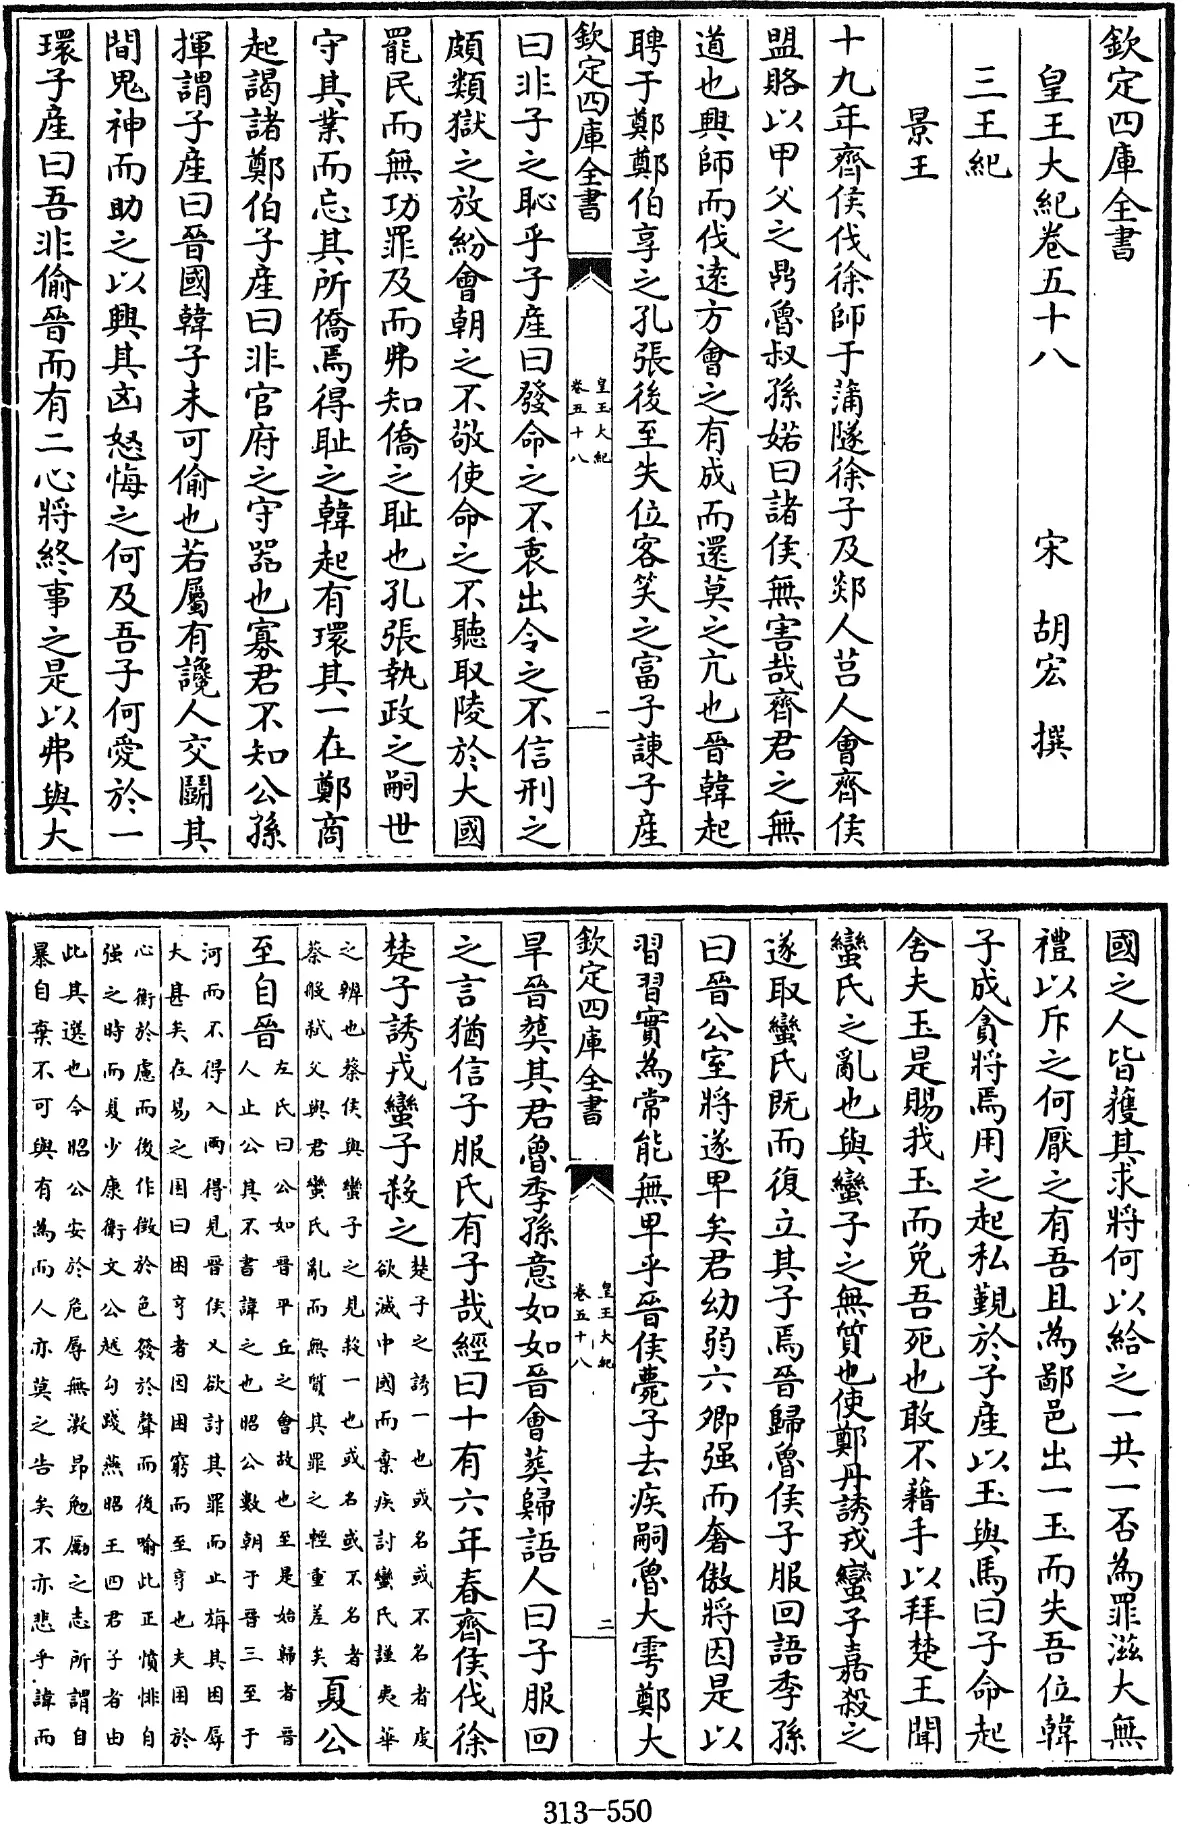 欽定四庫全書
皇王大紀卷五十八　宋　胡宏　撰
三王紀
景王
十九年齊侯伐徐師于蒲隧徐子及郯人莒人會齊侯
盟賂以甲父之鼎魯叔孫婼曰諸侯無害哉齊君之無
道也興師而伐逺方會之有成而還莫之亢也晉韓起
聘于鄭鄭伯享之孔張後至失位客笑之富子諫子産
欽定四庫全書
皇王大紀
卷五十八
一
曰非子之恥乎子産曰發命之不衷出令之不信刑之
頗類獄之放紛會朝之不敬使命之不聽取陵於大國
罷民而無功罪及而弗知僑之耻也孔張執政之嗣世
守其業而忘其所僑焉得耻之韓起有環其一在鄭商
起謁諸鄭伯子産曰非官府之守器也寡君不知公孫
揮謂子産曰晉國韓子未可偷也若屬有讒人交鬭其
間鬼神而助之以興其凶怒悔之何及吾子何愛於一
環子産曰吾非偷晉而有二心將終事之是以弗與大
國之人皆獲其求將何以給之一共一否為罪滋大無
禮以斥之何厭之有吾且為鄙邑出一玉而失吾位韓
子成貪將焉用之起私覲於子産以玉與馬曰子命起
舍夫玉是賜我玉而免吾死也敢不藉手以拜楚王聞
蠻氏之亂也與蠻子之無質也使鄭丹誘戎蠻子嘉殺之
遂取蠻氏既而復立其子焉晉歸魯侯子服回語季孫
曰晉公室將遂卑矣君幼弱六卿强而奢傲將因是以
習習實為常能無卑乎晉侯薨子去疾嗣魯大雩鄭大
欽定四庫全書
皇王大紀
卷五十八
二
旱晉葬其君魯季孫意如如晉會葬歸語人曰子服回
之言猶信子服氏有子哉經曰十有六年春齊侯伐徐
楚子誘戎蠻子殺之
楚子之誘一也或名或不名者䖍
欲滅中國而棄疾討蠻氏謹夷華
之辨也蔡侯與蠻子之見殺一也或名或不名者
蔡般弒父與君蠻氏亂而無質其罪之輕重差矣
夏公
至自晉
左氏曰公如晉平丘之會故也至是始歸者晉
人止公其不書諱之也昭公數朝于晉三至于
河而不得入兩得見晉侯又欲討其罪而止旃其困辱
大甚矣在易之困曰困亨者困困窮而至亨也夫困於
心衡於慮而後作徵於色發於聲而後喻此正憤悱自
强之時而夏少康衛文公越勾踐燕昭王四君子者由
此其選也今昭公安於危辱無激昂勉厲之志所謂自
暴自棄不可與有為而人亦莫之告矣不亦悲乎諱而
313-550